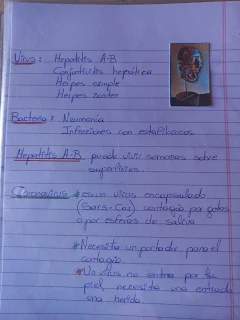 Virus: Hepatitis A-B
Conjuntivitis herpética
Herpes simple
Herpes zoster
Bacteria: Neumonía
Infecciones con estafilococos
Hepatitis A-B puede vivir semanas sobre
superficies.
Coronavirus * es un virus encapsulado
(Sars-Co2) contagio por gotas
o por esferas de saliva
* Necesita un portador para el
contagio.
* Un virus no entra por la
piel, necesita una entrada
una herida.